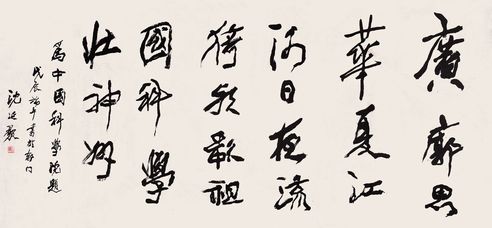 廣廓思
華夏江
河日夜流
猗歌祖
國科學
壯神州
爲中國科學院題
戊辰端午書於
沈延毅